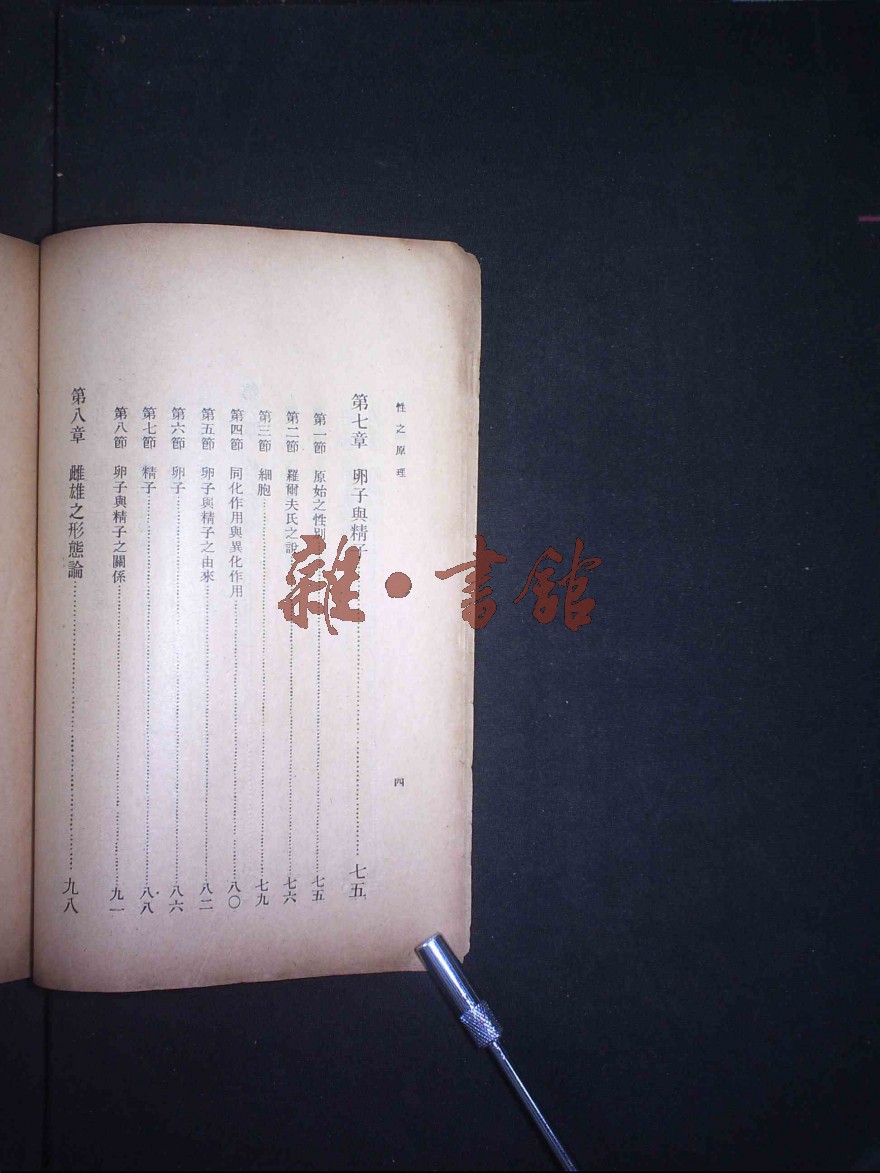 性之原理
四
第七章 卵子與精子 七五
第一節 原始之性別 七五
第二節 羅爾夫氏之說 七六
第三節 細胞 七九
第四節 同化作用與異化作用 八〇
第五節 卵子與精子之由來 八二
第六節 卵子 八六
第七節 精子 八八
第八節 卵子與精子之關係 九一
第八章 雌雄之形態論 九八
雜·書館